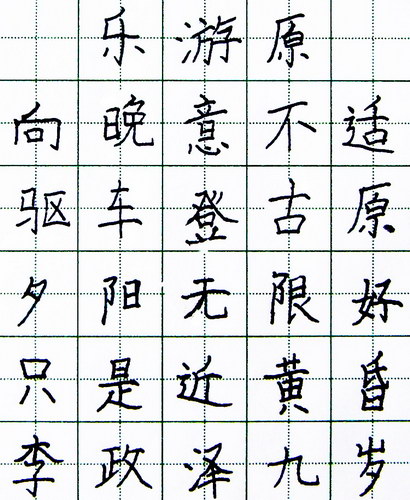 乐游原
向晚意不适
驱车登古原
夕阳无限好
只是近黄昏
李政泽九岁